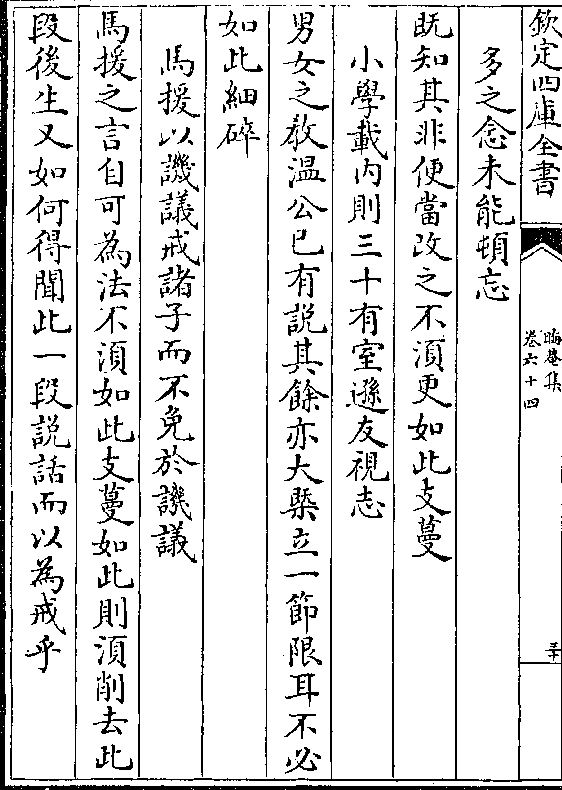 欽定四庫全書
晦庵集
卷六十四
三十
多之念未能頓忘
既知其非便當改之不湏更如此支蔓
小學載内則三十有室遜友視志
男女之教温公已有説其餘亦大槩立一節限耳不必
如此細碎
馬援以譏議戒諸子而不免於譏議
馬援之言自可為法不湏如此支蔓如此則湏削去此
段後生又如何得聞此一段説話而以為戒乎